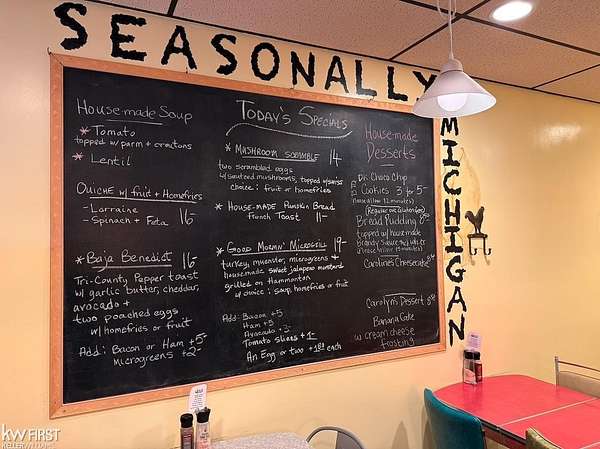 SEASONALLY
MICHIGAN
Housemade Soup
* Tomato
topped w/ parm + croutons
* Lentil
QUICHE w/ fruit + Homefries
- Lorraine
- Spinach + Feta 16-
* Baja Benedict 16-
Tri-County Pepper toast
w/ garlic butter, cheddar,
avocado +
two poached eggs
w/ homefries or fruit
Add: Bacon or Ham +5-
Microgreens +2-
TODAY'S SPECIALS
* MUSHROOM SCRAMBLE 14
two scrambled eggs
w/ sauteed mushrooms, topped w/ swiss
choice: fruit or homefries
* HOUSE-MADE Pumpkin Bread
french Toast 11-
* GOOD MORNIN' MICROGRILL 19-
turkey, muenster, microgreens +
housemade sweet jalapeno mustard
grilled on Hammonton
w/ choice: soup, homefries or fruit
Add: Bacon +5
Ham +5
Avocado +3
Tomato slices +1-
An Egg or two each
House-made
Desserts
Choco Chip
Cookies 3 for 5-
Bread Pudding
topped w/ housemade
Brandy Sauce
Caroline's Cheesecake
Carolyn's Dessert
Banana Cake
w cream cheese
frosting
kw FIRST